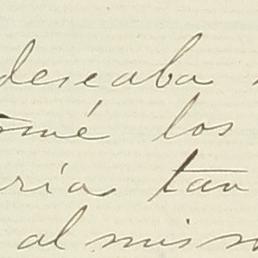 deseaba
omé los
ría tan
al mismo